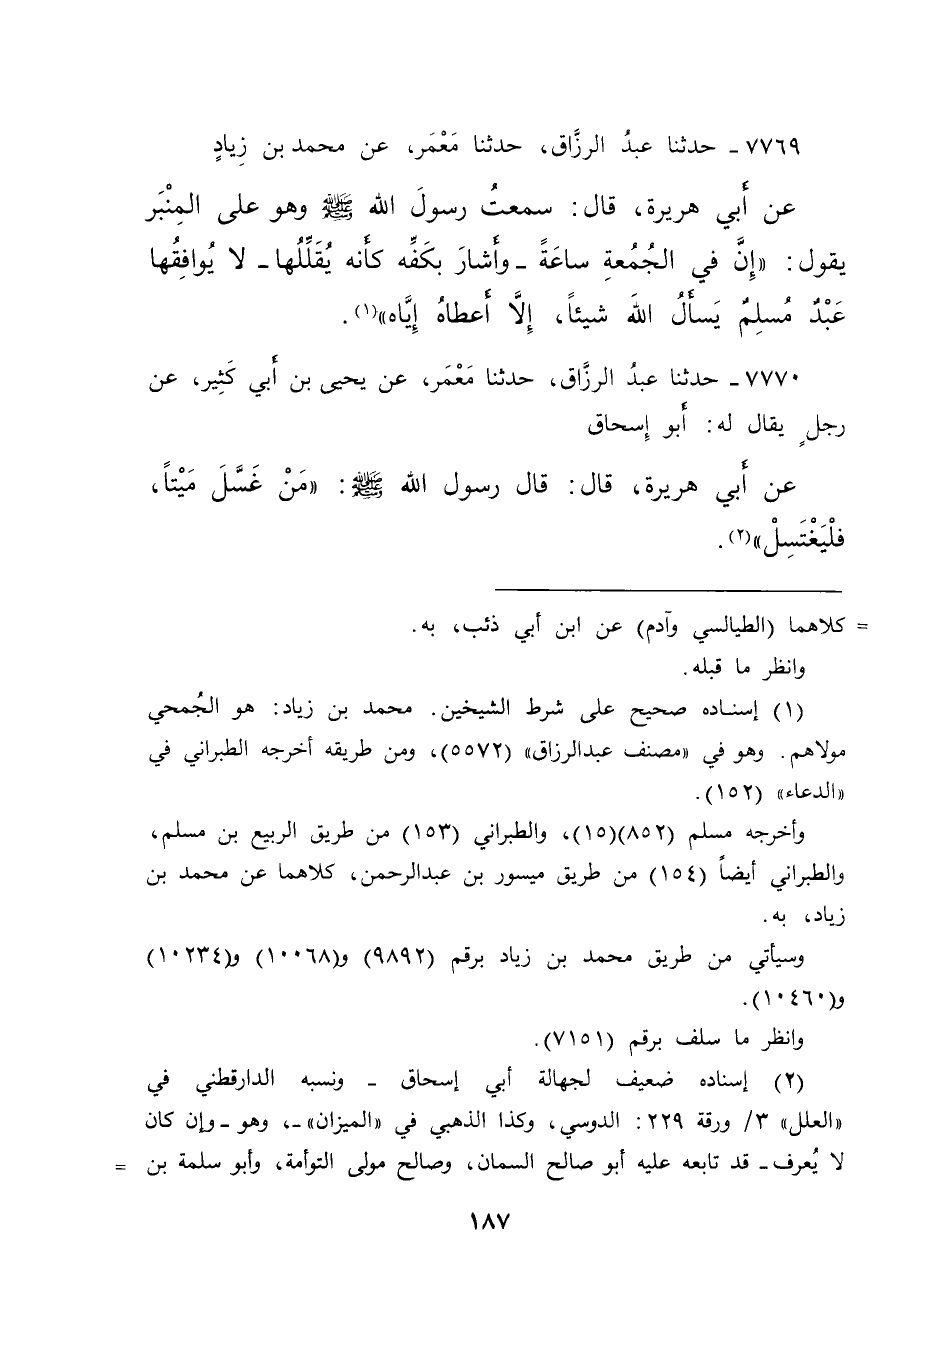 ٧٧٦٩ ـ حدثنا عبدُ الرزَّاق، حدثنا مَعْمَر، عن محمد بن زِيادٍ
عن أَبي هريرة، قال: سمعتُ رسولَ الله ﷺ وهو على المِنْبَر
يقول: «إِنَّ في الجُمُعةِ ساعَةً ـ وأَشارَ بكَفِّه كأَنه يُقَلِّلُها ـ لا يُوافِقُها
عَبْدٌ مُسلِمٌ يَسأَلُ اللهَ شيئاً، إِلَّا أَعطاهُ إِيَّاه»(١).
٧٧٧٠ ـ حدثنا عبدُ الرزَّاق، حدثنا مَعْمَر، عن يحيى بن أَبي كَثِير، عن
رجلٍ يقال له: أَبو إِسحاق
عن أَبي هريرة، قال: قال رسول الله ﷺ: «مَنْ غَسَّلَ مَيْتاً،
فلْيَغْتَسِلْ»(٢).
= كلاهما (الطيالسي وآدم) عن ابن أبي ذئب، به.
وانظر ما قبله.
(١) إسناده صحيح على شرط الشيخين. محمد بن زياد: هو الجُمحي
مولاهم. وهو في «مصنف عبدالرزاق» (٥٥٧٢)، ومن طريقه أخرجه الطبراني في
«الدعاء» (١٥٢).
وأخرجه مسلم (٨٥٢)(١٥)، والطبراني (١٥٣) من طريق الربيع بن مسلم،
والطبراني أيضاً (١٥٤) من طريق ميسور بن عبدالرحمن، كلاهما عن محمد بن
زياد، به.
وسيأتي من طريق محمد بن زياد برقم (٩٨٩٢) و(١٠٠٦٨) و(١٠٢٣٤)
و(١٠٤٦٠).
وانظر ما سلف برقم (٧١٥١).
(٢) إسناده ضعيف لجهالة أبي إسحاق ـ ونسبه الدارقطني في
«العلل» ٣/ ورقة ٢٢٩: الدوسي، وكذا الذهبي في «الميزان» ـ، وهو ـ وإن كان
لا يُعرف ـ قد تابعه عليه أبو صالح السمان، وصالح مولى التوأمة، وأبو سلمة بن =
١٨٧